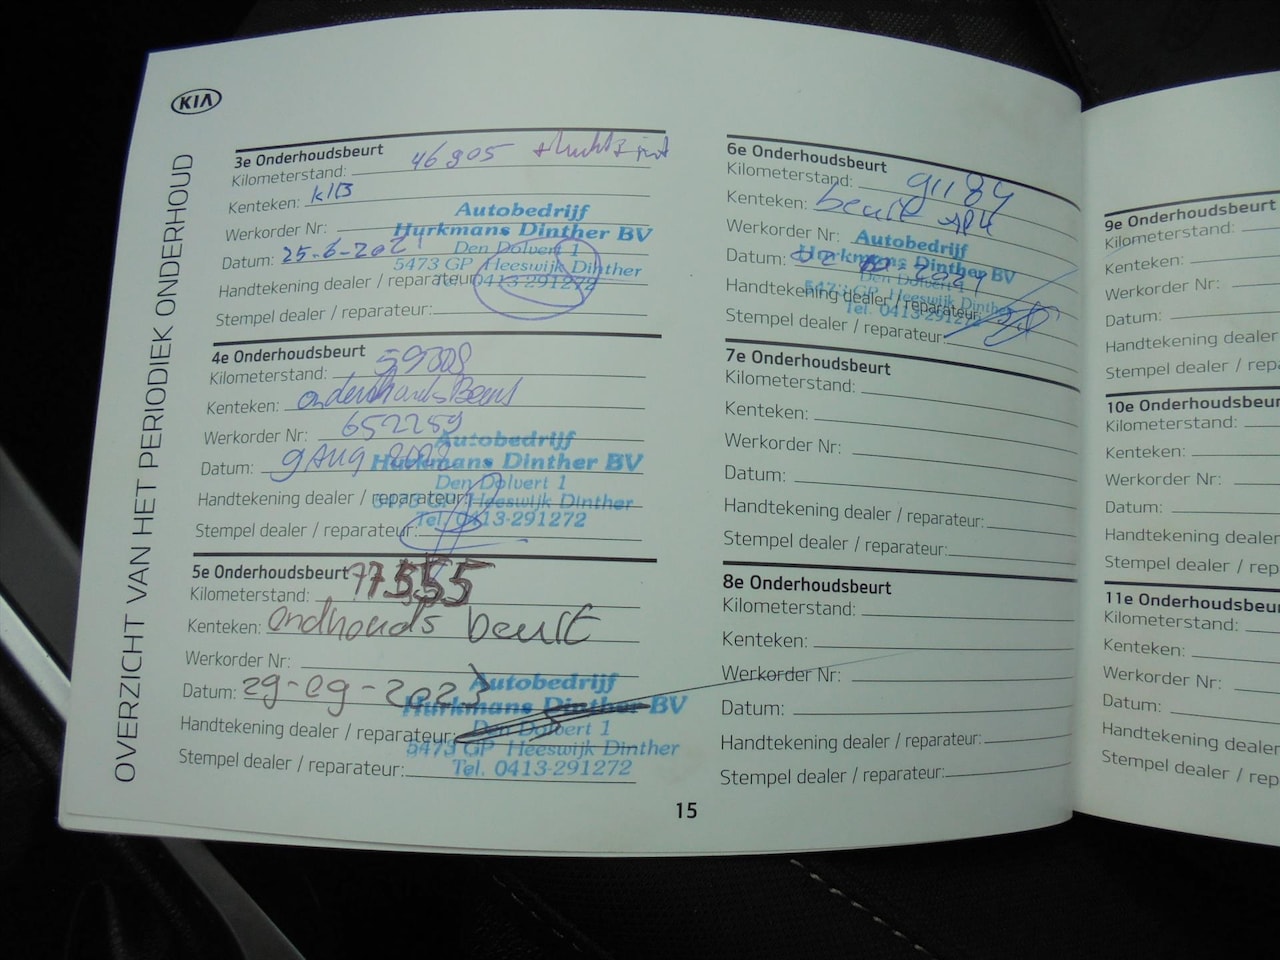 KIA
OVERZICHT VAN HET PERIODIEK ONDERHOUD
3e Onderhoudsbeurt
Kilometerstand: 46905
Kenteken: KlB
Werkorder Nr:
Datum: 25-6-2021
Handtekening dealer / reparateur:
Stempel dealer / reparateur:
Autobedrijf
Hurkmans Dinther BV
Den Dolvert 1
5473 GP Heeswijk Dinther
Tel. 0413-291272
4e Onderhoudsbeurt
Kilometerstand: 59008
Kenteken: onderhoudsBeurt
Werkorder Nr: 652259
Datum: 9 Aug 2022
Handtekening dealer / reparateur:
Stempel dealer / reparateur:
Autobedrijf
Hurkmans Dinther BV
Den Dolvert 1
5473 GP Heeswijk Dinther
Tel. 0413-291272
5e Onderhoudsbeurt
Kilometerstand: 77555
Kenteken: ondhouds beurt
Werkorder Nr:
Datum: 29-09-2023
Handtekening dealer / reparateur:
Stempel dealer / reparateur:
Autobedrijf
Hurkmans Dinther BV
Den Dolvert 1
5473 GP Heeswijk Dinther
Tel. 0413-291272
6e Onderhoudsbeurt
Kilometerstand: 91184
Kenteken: beurt
Werkorder Nr:
Datum:
Handtekening dealer / reparateur:
Stempel dealer / reparateur:
Autobedrijf
Hurkmans Dinther BV
Den Dolvert 1
5473 GP Heeswijk Dinther
Tel. 0413-291272
7e Onderhoudsbeurt
Kilometerstand:
Kenteken:
Werkorder Nr:
Datum:
Handtekening dealer / reparateur:
Stempel dealer / reparateur:
8e Onderhoudsbeurt
Kilometerstand:
Kenteken:
Werkorder Nr:
Datum:
Handtekening dealer / reparateur:
Stempel dealer / reparateur:
15
9e Onderhoudsbeurt
Kilometerstand:
Kenteken:
Werkorder Nr:
Datum:
Handtekening dealer
Stempel dealer / repa
10e Onderhoudsbeu
Kilometerstand:
Kenteken:
Werkorder Nr:
Datum:
Handtekening dealer
Stempel dealer / rep
11e Onderhoudsbeu
Kilometerstand:
Kenteken:
Werkorder Nr:
Datum:
Handtekening dealer
Stempel dealer / rep